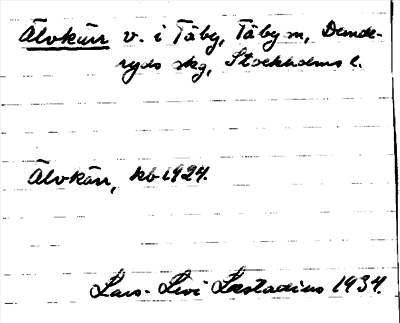 Älvkärr v. i Täby, Täby sn, Dande-
ryds skg, Stockholms l.
Älvkärr, kb 1924.
Lars-Levi Læstadius 1934.